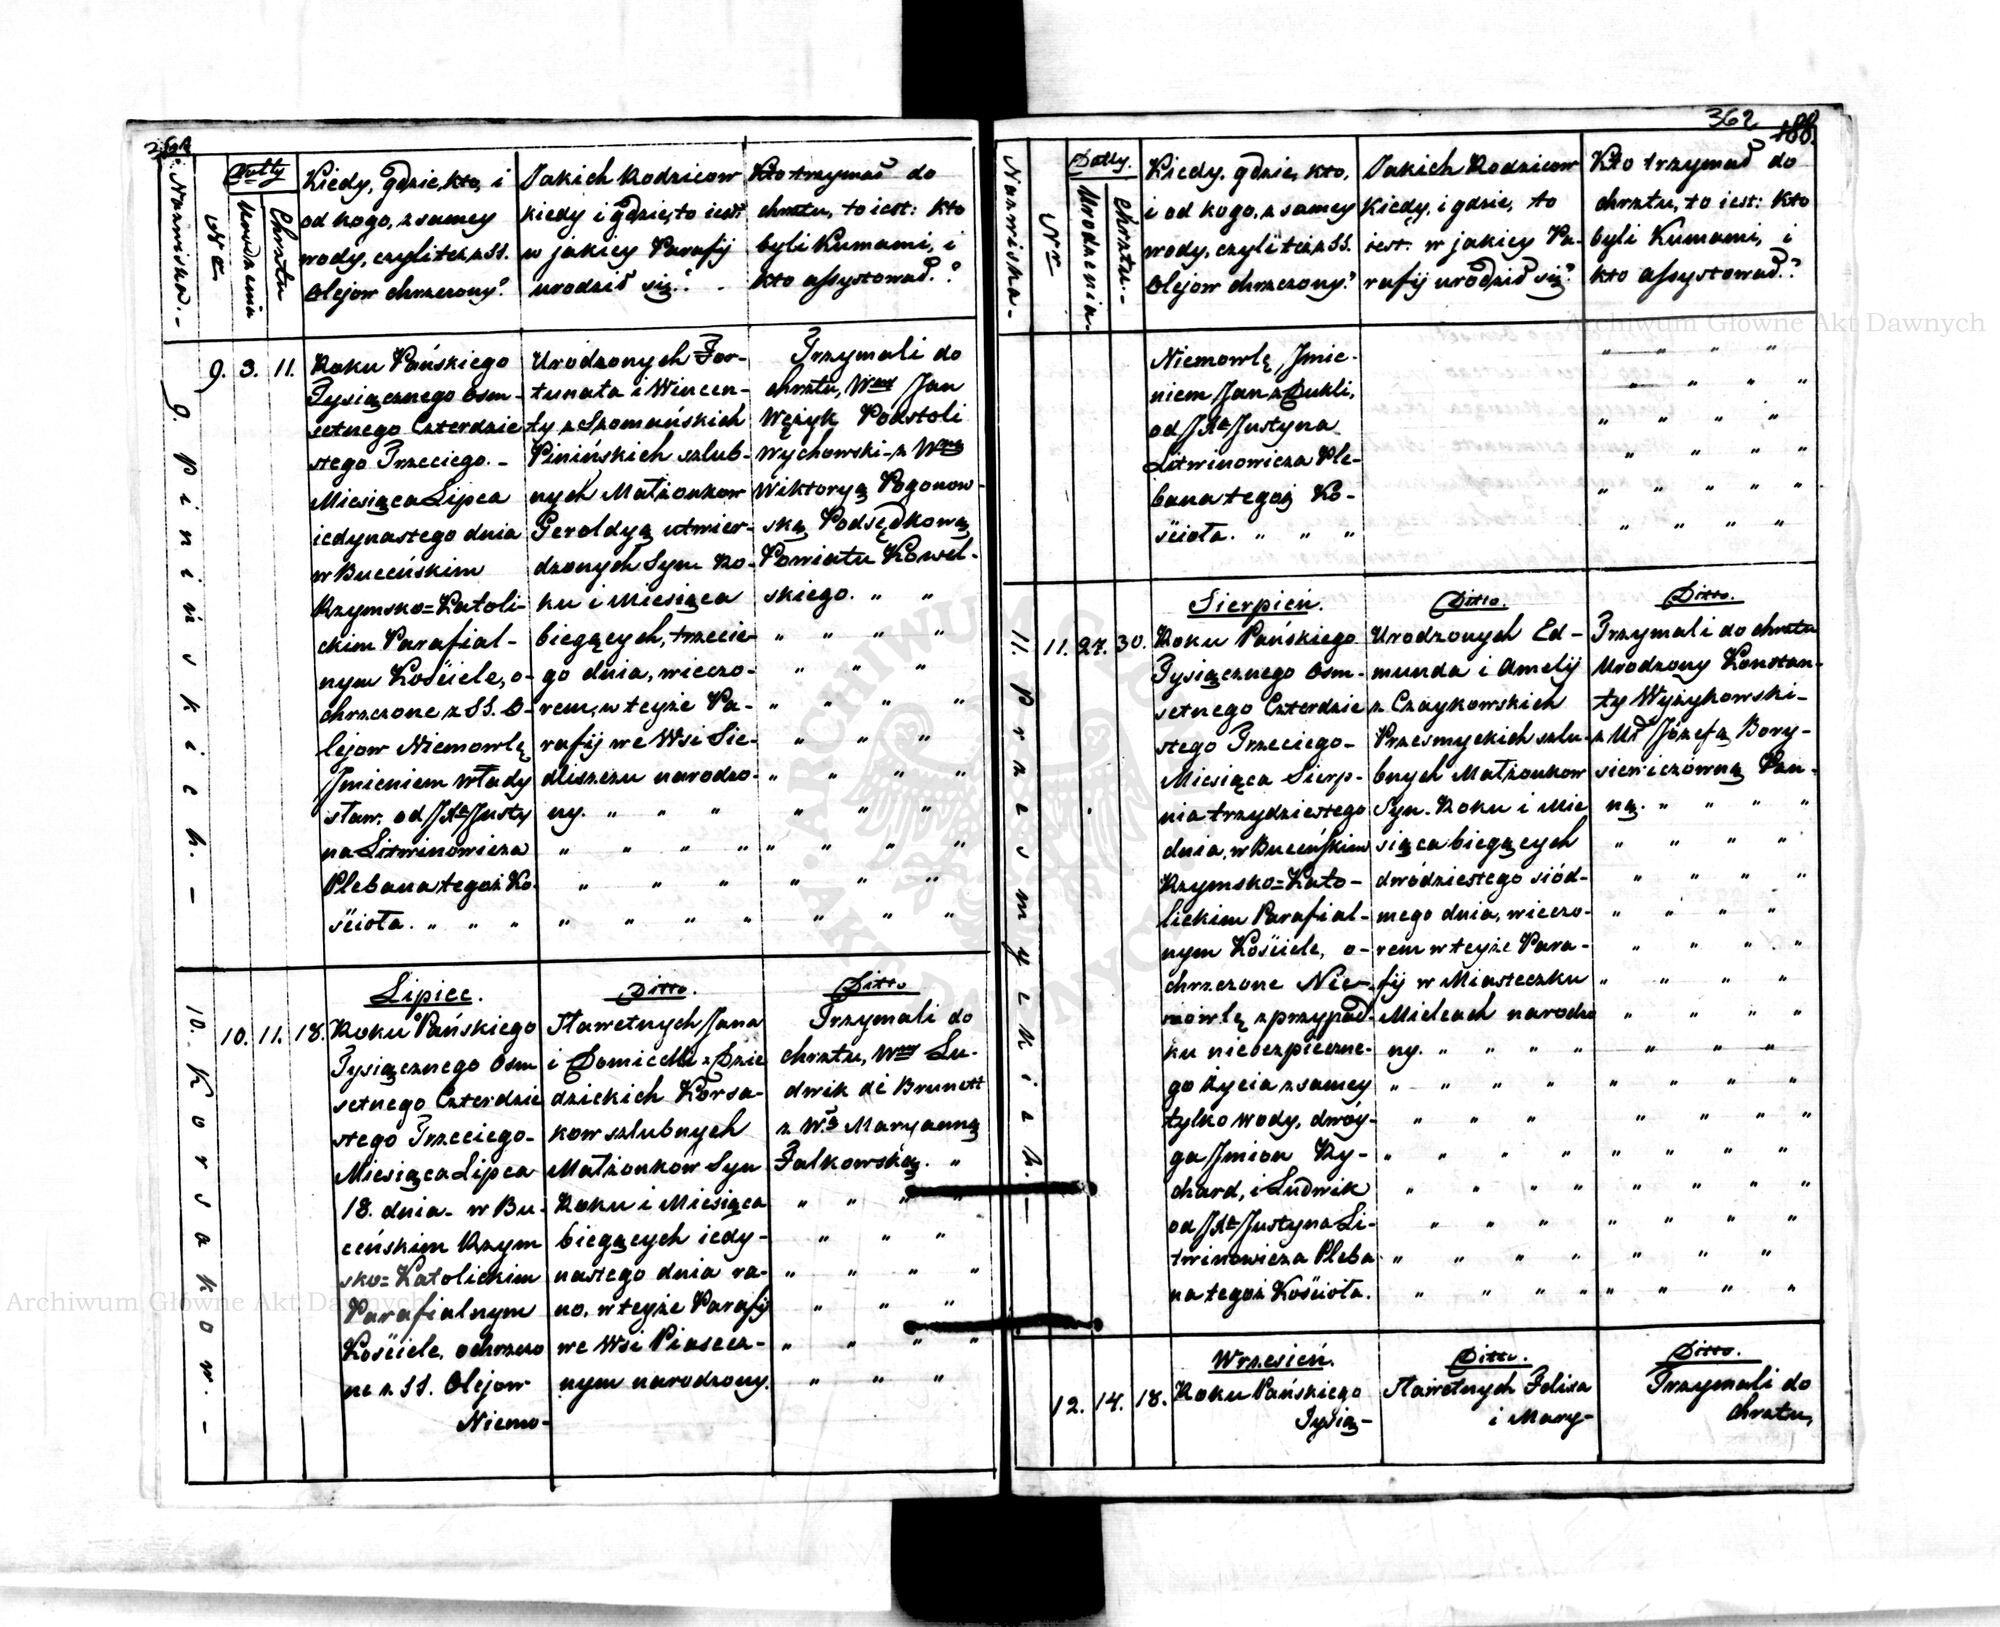 362
Nazwiska.
No.
Datty
Urodzenia
Chrztu
Kiedy, gdzie, kto, i
od kogo, z samey
wody, czyli też z SS.
Olejow chrzczony?
Jakich Rodzicow
kiedy i gdzie, to iest:
w jakiey Parafij
urodził się?
Kto trzymał do
chrztu, to iest: kto
byli Kumami, i
kto assystował?
9. Pinińskich.
9. 3. 11.
Roku Pańskiego
Tysiącznego osm-
setnego Czterdzie
stego Trzeciego.
Miesiąca Lipca
iedynastego dnia
w Buceńskim
Rzymsko=Katoli-
ckim Parafial-
nym Kościele, o-
chrzczone z SS. O-
lejow Niemowlę
Jmieniem Włady
sław, od JXa Justy
na Litwinowicza
Plebana tegoż Ko-
ścioła. " " "
Urodzonych For-
tunata i Wincen-
ty z Szomańskich
Pinińskich szlub-
nych Małżonkow
Geroldyą utwier-
dzonych Syn Ro-
ku i Miesiąca
biegących, trzecie-
go dnia, wieczo-
rem, w teyże Pa-
rafij we Wsi Sie-
dliszczu narodzo-
ny. " " "
Trzymali do
chrztu, Wny Jan
Wężyk Podstoli
Wychowski z Wną
Wiktoryą Pogonow-
ską Podsędkową
Powiatu Kowel-
skiego. " "
10. Korsakow.
Lipiec.
10. 11. 18.
Roku Pańskiego
Tysiącznego Osm
setnego Czterdzie
stego Trzeciego
Miesiąca Lipca
18. dnia w Bu-
ceńskim Rzym
sko=Katolickim
Parafialnym
Kościele, ochrzczo
ne z SS. Olejow
Niemo-
Ditto.
Sławetnych Jana
i Domicelli z Dzie
dzickich Korsa-
kow szlubnych
Małżonkow Syn
Roku i Miesiąca
biegących iedy-
nastego dnia ra-
no, w teyże Parafij
we Wsi Piasecz-
nym narodzony.
Ditto
Trzymali do
chrztu, Wny Lu-
dwik de Brunett
z Wą Maryanną
Falkowską. "
362
188.
Nazwiska.
Nr
Datty.
Urodzenia.
Chrztu.
Kiedy, gdzie, kto,
i od kogo, z samey
wody, czyli też z SS.
Olejow chrzczony?
Jakich Rodzicow
Kiedy, i gdzie, to
iest: w jakiey Pa-
rafij urodził się?
Kto trzymał do
chrztu, to iest: kto
byli Kumami, i
kto assystował?
Niemowlę, Jmie-
niem Jan z Dukli,
od JXa Justyna
Litwinowicza Ple-
bana tegoż Ko-
ścioła. " " "
11. Przesmyckich.
Sierpień.
11. 27. 30.
Roku Pańskiego
Tysiącznego Osm-
setnego Czterdzie
stego Trzeciego
Miesiąca Sierp-
nia trzydziestego
dnia, w Buceńskim
Rzymsko=Kato-
lickim Parafial-
nym Kościele, o-
chrzczone Nie-
mowlę z przypad-
ku niebezpieczne-
go życia z samey
tylko wody, dwoy-
ga Jmion Ry-
chard, i Ludwik
od JXa Justyna Li-
twinowicza Pleba
na tegoż Kościoła.
Ditto.
Urodzonych Ed-
munda i Amelij
z Czaykowskich
Przesmyckich szlu-
bnych Małżonkow
Syn. Roku i Mie
siąca biegących
dwódziestego siód-
mego dnia, wieczo-
rem w teyże Para-
fij w Miasteczku
Mielcach narodzo
ny. " " " "
Ditto.
Trzymali do chrztu
Urodzony Konstan-
ty Wyżykowski
z Ur Józefą Bory-
siewiczówną Pan-
ną. " " " "
Wrzesień.
12. 14. 18.
Roku Pańskiego
Tysią-
Ditto.
Sławetnych Felixa
i Mary-
Ditto.
Trzymali do
chrztu,
Archiwum Główne Akt Dawnych
Archiwum Główne Akt Dawnych